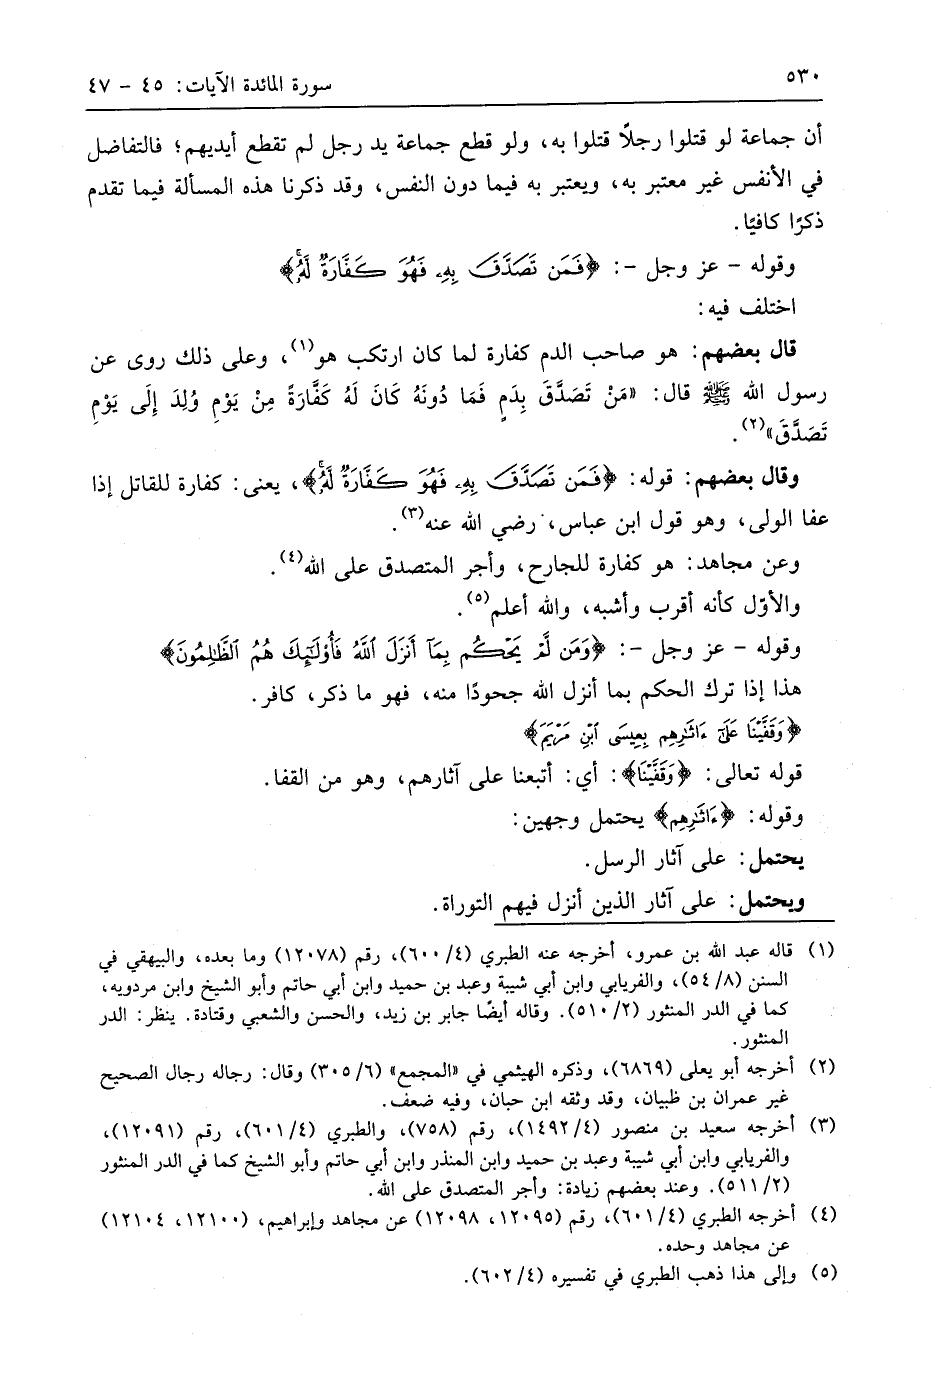 ٥٣٠
سورة المائدة الآيات: ٤٥ - ٤٧
أن جماعة لو قتلوا رجلًا قتلوا به، ولو قطع جماعة يد رجل لم تقطع أيديهم؛ فالتفاضل
في الأنفس غير معتبر به، ويعتبر به فيما دون النفس، وقد ذكرنا هذه المسألة فيما تقدم
ذكرًا كافيًا.
وقوله - عز وجل -: ﴿فَمَن تَصَدَّقَ بِهِۦ فَهُوَ كَفَّارَةٌ لَّهُۥۚ﴾
اختلف فيه:
قال بعضهم: هو صاحب الدم كفارة لما كان ارتكب هو(١)، وعلى ذلك روى عن
رسول الله ﷺ قال: «مَنْ تَصَدَّقَ بِدَمٍ فَمَا دُونَهُ كَانَ لَهُ كَفَّارَةً مِنْ يَوْمِ وُلِدَ إِلَى يَوْمِ
تَصَدَّقَ»(٢).
وقال بعضهم: قوله: ﴿فَمَن تَصَدَّقَ بِهِۦ فَهُوَ كَفَّارَةٌ لَّهُۥۚ﴾، يعنى: كفارة للقاتل إذا
عفا الولى، وهو قول ابن عباس، رضي الله عنه(٣).
وعن مجاهد: هو كفارة للجارح، وأجر المتصدق على الله(٤).
والأوّل كأنه أقرب وأشبه، والله أعلم(٥).
وقوله - عز وجل -: ﴿وَمَن لَّمْ يَحْكُم بِمَآ أَنزَلَ ٱللَّهُ فَأُوْلَٰٓئِكَ هُمُ ٱلظَّٰلِمُونَ﴾
هذا إذا ترك الحكم بما أنزل الله جحودًا منه، فهو ما ذكر، كافر.
﴿وَقَفَّيْنَا عَلَىٰٓ ءَاثَٰرِهِم بِعِيسَى ٱبْنِ مَرْيَمَ﴾
قوله تعالى: ﴿وَقَفَّيْنَا﴾: أي: أتبعنا على آثارهم، وهو من القفا.
وقوله: ﴿ءَاثَٰرِهِم﴾ يحتمل وجهين:
يحتمل: على آثار الرسل.
ويحتمل: على آثار الذين أنزل فيهم التوراة.
(١) قاله عبد الله بن عمرو، أخرجه عنه الطبري (٤/ ٦٠٠)، رقم (١٢٠٧٨) وما بعده، والبيهقي في
السنن (٨/ ٥٤)، والفريابي وابن أبي شيبة وعبد بن حميد وابن أبي حاتم وأبو الشيخ وابن مردويه،
كما في الدر المنثور (٢/ ٥١٠). وقاله أيضًا جابر بن زيد، والحسن والشعبي وقتادة. ينظر: الدر
المنثور.
(٢) أخرجه أبو يعلى (٦٨٦٩)، وذكره الهيثمي في «المجمع» (٦/ ٣٠٥) وقال: رجاله رجال الصحيح
غير عمران بن ظبيان، وقد وثقه ابن حبان، وفيه ضعف.
(٣) أخرجه سعيد بن منصور (٤/ ١٤٩٢)، رقم (٧٥٨)، والطبري (٤/ ٦٠١)، رقم (١٢٠٩١)،
والفريابي وابن أبي شيبة وعبد بن حميد وابن المنذر وابن أبي حاتم وأبو الشيخ كما في الدر المنثور
(٢/ ٥١١). وعند بعضهم زيادة: وأجر المتصدق على الله.
(٤) أخرجه الطبري (٤/ ٦٠١)، رقم (١٢٠٩٥، ١٢٠٩٨) عن مجاهد وإبراهيم، (١٢١٠٠، ١٢١٠٤)
عن مجاهد وحده.
(٥) وإلى هذا ذهب الطبري في تفسيره (٤/ ٦٠٢).